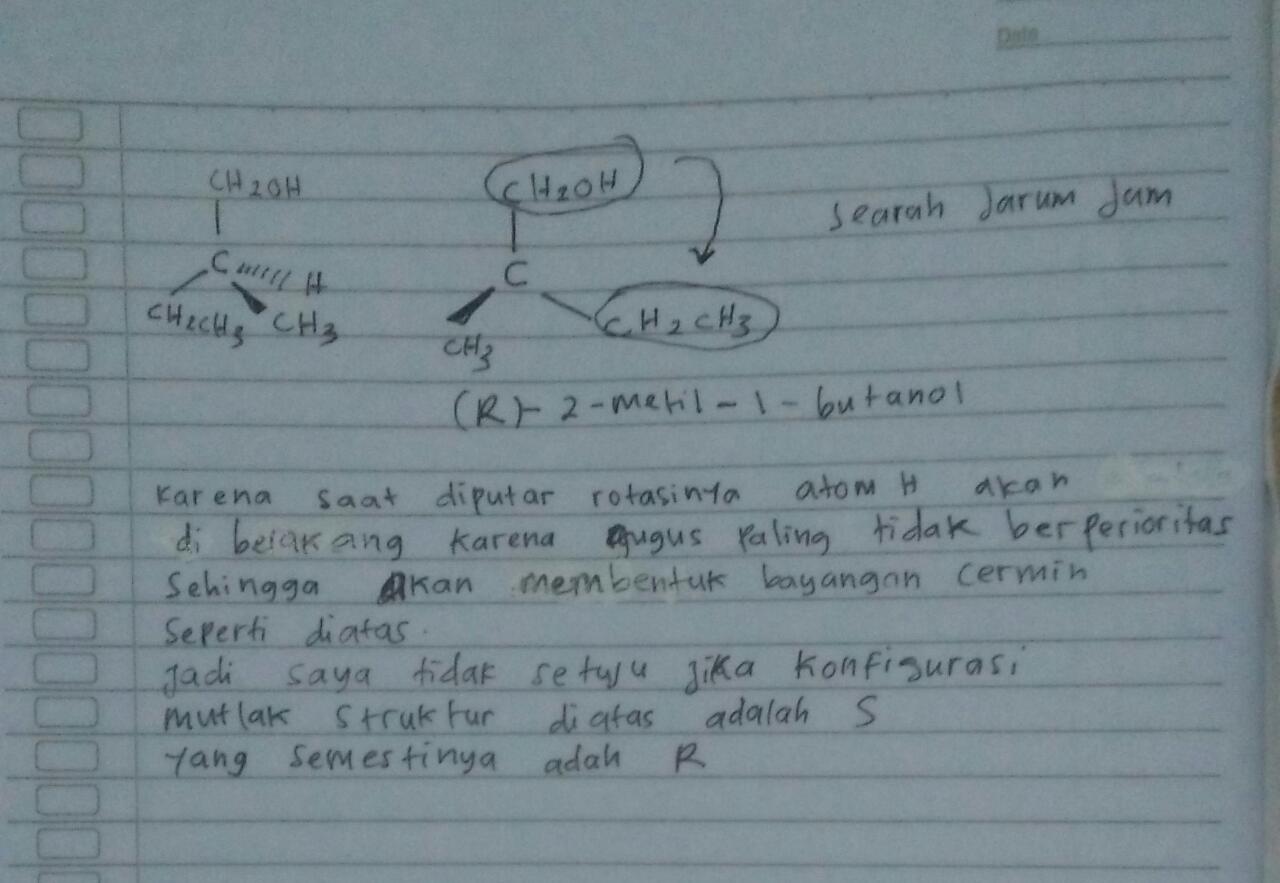 Date
CH2OH CH2OH searah Jarum Jam
C H C
CH2CH3 CH3 CH3 CH2CH3
(R)-2-metil-1-butanol
Karena saat diputar rotasinya atom H akan
di belakang karena gugus paling tidak berperioritas
Sehingga Akan membentuk bayangan cermin
Seperti diatas.
Jadi saya tidak setuju jika konfigurasi
mutlak struktur diatas adalah S
yang semestinya adah R